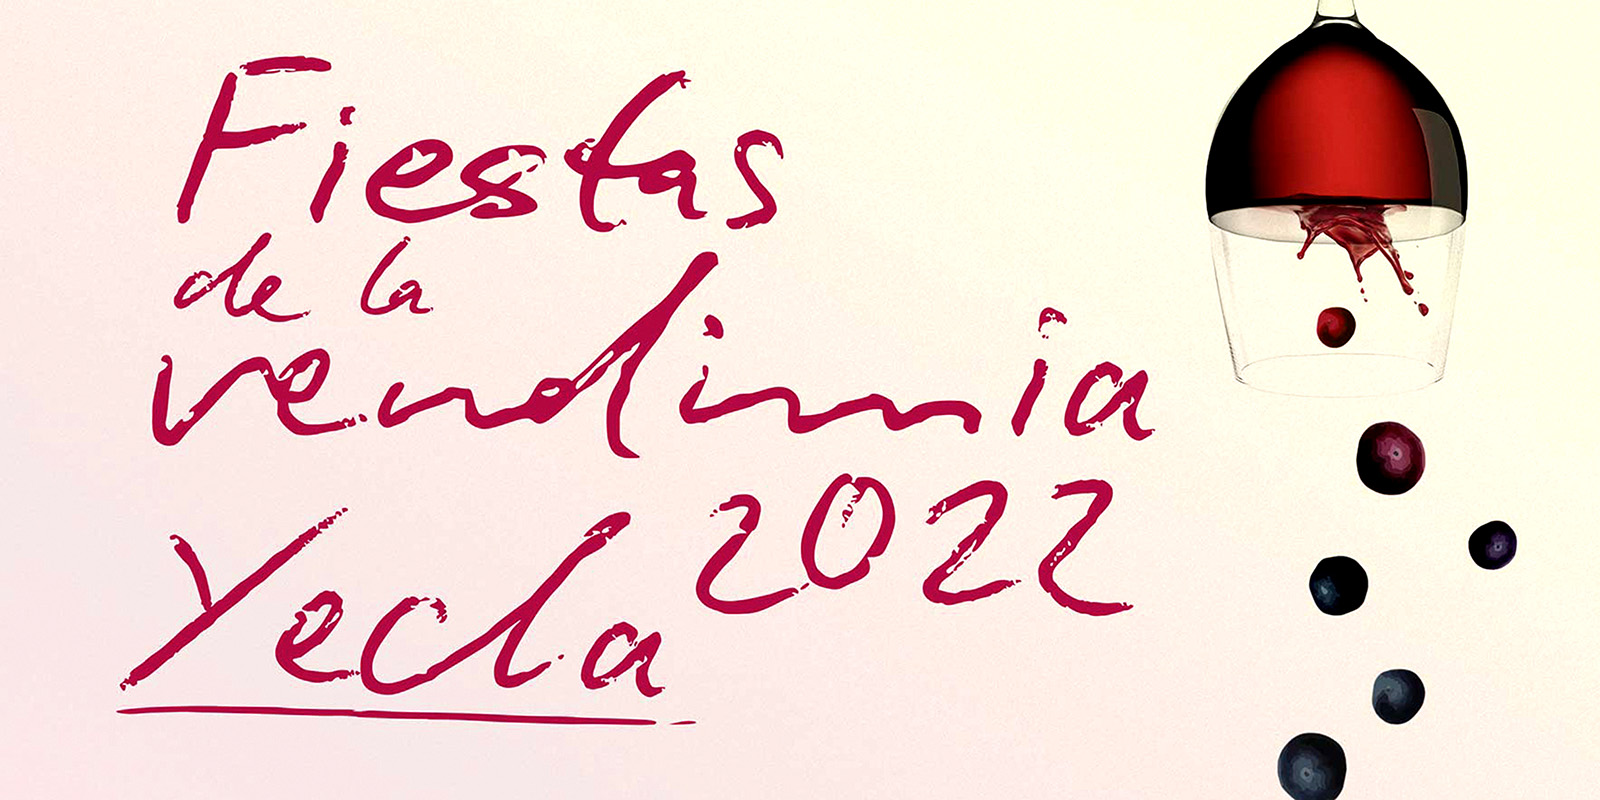 Fiestas
de la
vendimia
2022
Yecla